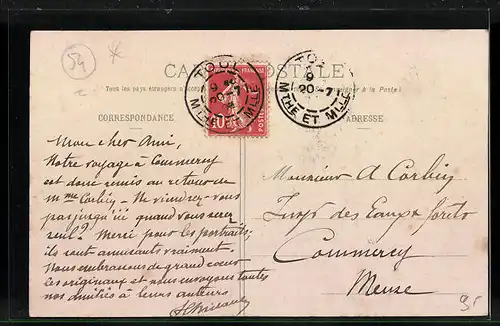 54
CARTE POSTALE
Tous les pays étrangers à la Poste)
CORRESPONDANCE
ADRESSE
TOUL
9
20-7
MTHE ET MLLE
TOUL
9
20-7
MTHE ET MLLE
10
Mon cher Ami,
Notre voyage à Commercy
est donc remis au retour de
Mme Corbin – Ne viendrez-vous
pas jusqu'ici quand vous serez
seul? Merci pour les portraits;
ils sont amusants vraiment.
Nous embrassons de grand cœur
les originaux et nous envoyons toutes
nos amitiés à leurs auteurs
Monsieur A Corbin
Insp des Eaux & forêts
Commercy
Meuse
95